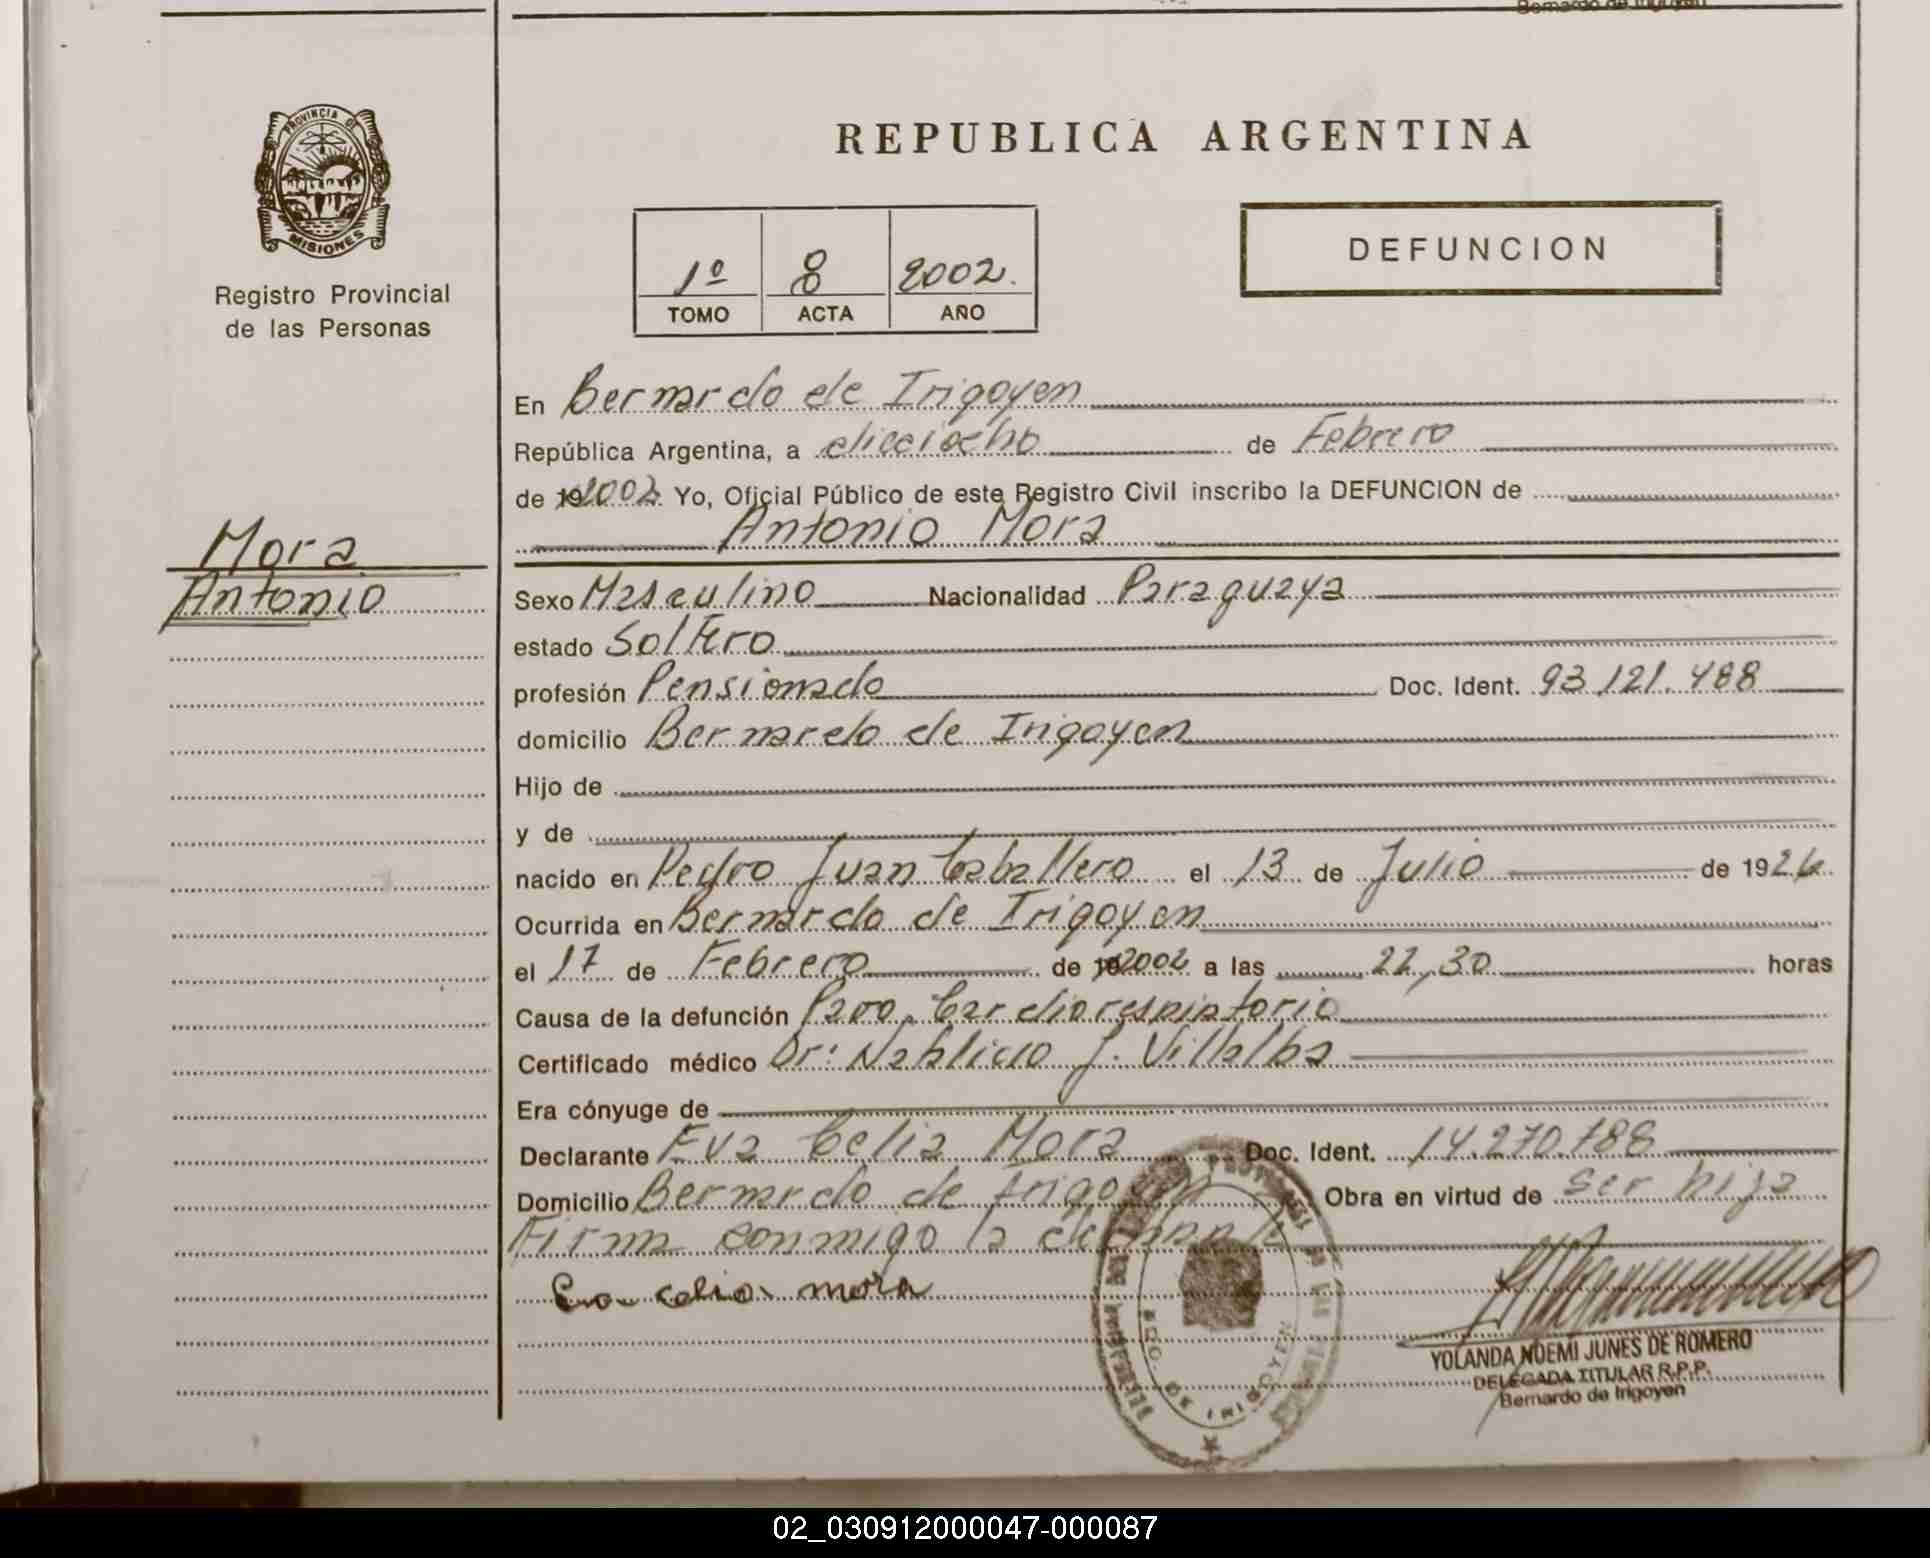 PROVINCIA DE
MISIONES
Registro Provincial
de las Personas
Mora
Antonio
REPUBLICA ARGENTINA
1º 8 2002.
TOMO ACTA AÑO
DEFUNCION
En Bernardo de Irigoyen
República Argentina, a dieciocho de Febrero
de 192002. Yo, Oficial Público de este Registro Civil inscribo la DEFUNCION de
Antonio Mora
Sexo Masculino Nacionalidad Paraguaya
estado Soltero
profesión Pensionado Doc. Ident. 93.121.488
domicilio Bernardo de Irigoyen
Hijo de
y de
nacido en Pedro Juan Caballero el 13 de Julio de 1926.
Ocurrida en Bernardo de Irigoyen
el 17 de Febrero de 192002 a las 22,30 horas
Causa de la defunción Paro Cardiorespiratorio
Certificado médico Dr: J. Villalba
Era cónyuge de
Declarante Eva Celia Mora Doc. Ident. 14.270.788
Domicilio Bernardo de Irigoyen Obra en virtud de ser hija
Firma conmigo la declarante
Eva celia mora
YOLANDA NOEMI JUNES DE ROMERO
DELEGADA TITULAR R.P.P.
Bernardo de Irigoyen
02_030912000047-000087